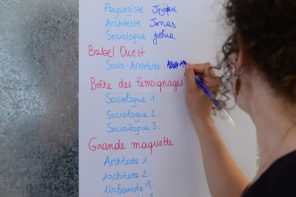 Paysagiste
Architecte Jonas
Sociologue Joshua
Babel Ouest
Socio-Architecte
Boîte des témoignages
Sociologue 1.
Sociologue 2.
Sociologue 3.
Grande maquette
Architecte 1.
Architecte 2.
Urbaniste